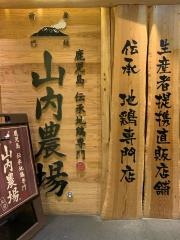 生産者提携直販店舗
伝承 地鶏専門店
鹿児島 伝承地鶏専門
山内農場
山内農場